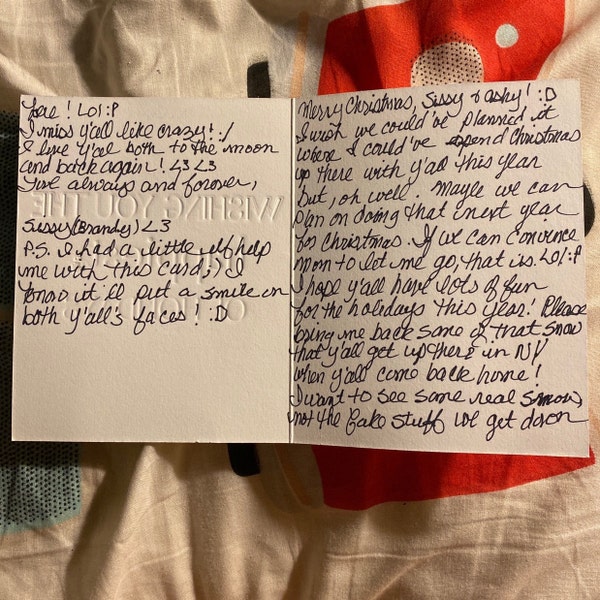 Merry Christmas, Sissy & ashy! :D
I wish we could've planned it
where I could've spend Christmas
up there with y'all this year
but, oh well. Maybe we can
plan on doing that next year
for Christmas. If we can convince
mom to let me go, that is. LOl :P
I hope y'all have lots of fun
for the holidays this year! Please
bring me back some of that snow
that y'all get up there in NY
when y'all come back home!
I want to see some real snow,
not the fake stuff we get down
here! LOl :P
I miss y'all like crazy! :/
I love y'all both to the moon
and back again! <3 <3
Love always and forever,
Sissy (Brandy) <3
P.S. I had a little elf help
me with this card; I
know it'll put a smile on
both y'all's faces! :D
WISHING YOU THE